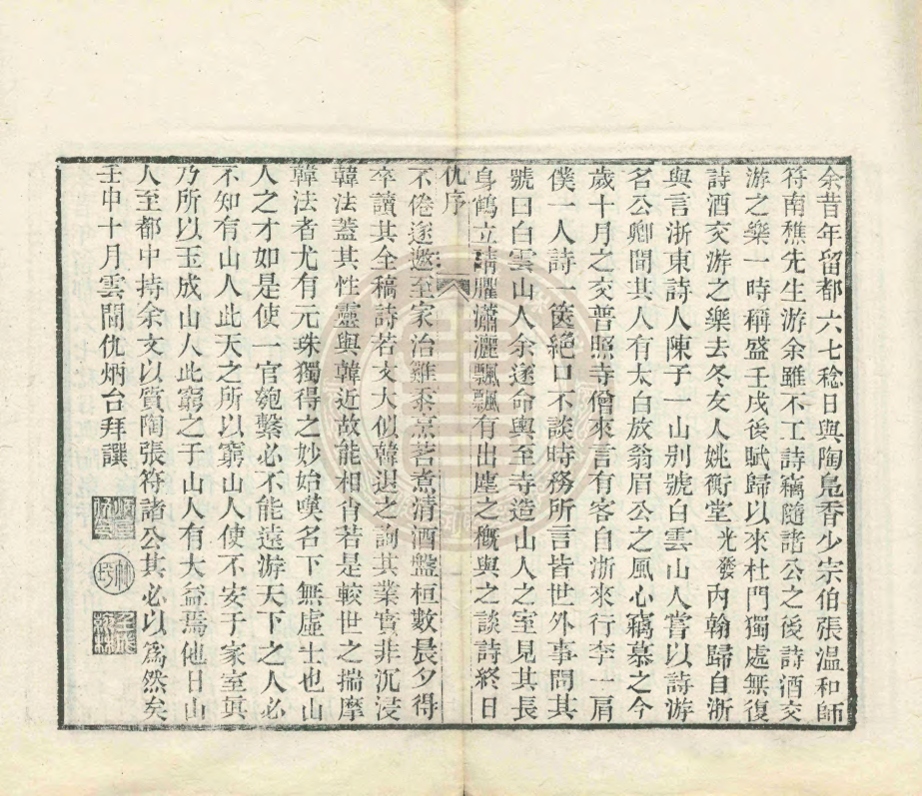 余昔年留都六七稔日與陶鳧香少宗伯張温和師
符南樵先生游余雖不工詩竊隨諸公之後詩酒交
游之樂一時稱盛壬戌後賦歸以來杜門獨處無復
詩酒交游之樂去冬友人姚衡堂光發內翰歸自浙
與言浙東詩人陳子一山別號白雲山人嘗以詩游
名公卿間其人有太白放翁眉公之風心竊慕之今
歲十月之交普照寺僧來言有客自浙來行李一肩
僕一人詩一篋絕口不談時務所言皆世外事問其
號曰白雲山人余遂命輿至寺造山人之室見其長
身鶴立清臞瀟灑飄飄有出塵之概與之談詩終日
仇序
不倦遂邀至家治雞黍烹茗煮清酒盤桓數晨夕得
卒讀其全稿詩若文大似韓退之詢其業實非沉浸
韓法蓋其性靈與韓近故能相肖若是較世之揣摩
韓法者尤有元珠獨得之妙始嘆名下無虛士也山
人之才如是使一官匏繫必不能遠游天下之人必
不知有山人此天之所以窮山人使不安于家室寔
乃所以玉成山人此窮之于山人有大益焉他日山
人至都中持余文以質陶張符諸公其必以爲然矣
壬申十月雲間仇炳台拜譔